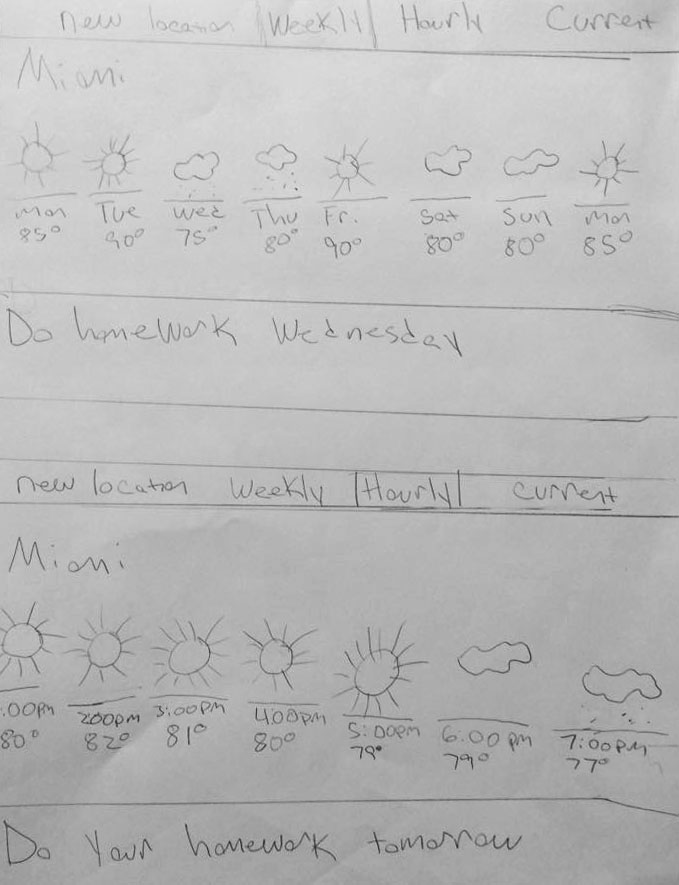 new location Weekly Hourly Current
Miami
Mon Tue Wed Thu Fr. Sat Sun Mon
85° 90° 75° 80° 90° 80° 80° 85°
Do homework Wednesday
new location Weekly Hourly current
Miami
:00pm 200pm 3:00pm 400pm 5:00pm 6:00 pm 7:00pm
80° 82° 81° 80° 79° 79° 77°
Do Your homework tomorrow